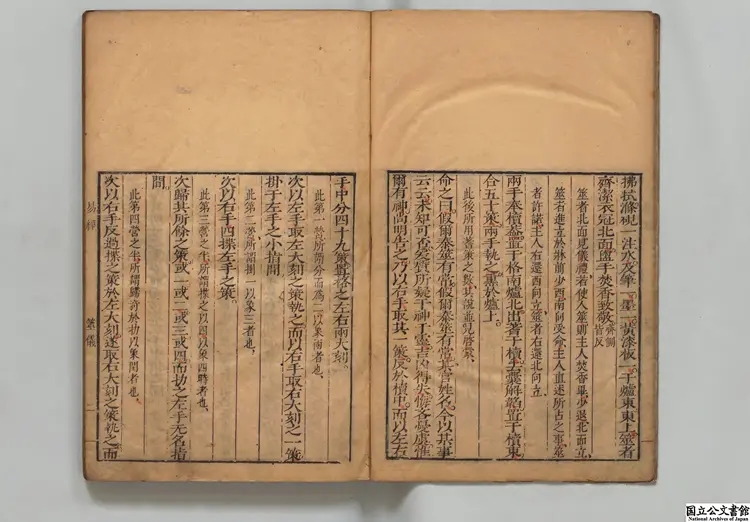 拂拭滌硯一注水及筆一墨一黃漆板一于爐東東上筮者
齊潔衣冠北面盥手焚香致敬齊側皆反
筮者北面見儀禮若使人筮則主人焚香畢少退北面立
筮者進立於牀前少西南向受命主人直述所占之事筮
者許諾主人右還西向立筮者右還北向立
兩手奉櫝蓋置于格南爐北出蓍于櫝去囊解韜置于櫝東
合五十策兩手執之熏於爐上
此後所用蓍策之數其說並見啓蒙
命之曰假爾泰筮有常假爾泰筮有常某官姓名今以某事
云云未知可否爰質所疑于神于靈吉凶得失悔吝憂虞惟
爾有神尚明告之乃以右手取其一策反於櫝中而以左右
手中分四十九策置格之左右兩大刻
此第一營所謂分而爲二以象兩者也
次以左手取左大刻之策執之而以右手取右大刻之一策
掛于左手之小指間
此第二營所謂掛一以象三者也
次以右手四揲左手之策
此第三營之半所謂揲之以四以象四時者也
次歸其所餘之策或一或二或三或四而扐之左手无名指
間
此第四營之半所謂歸奇於扐以象閏者也
次以右手反過揲之策於左大刻遂取右大刻之策執之而
易經 筮儀
国立公文書館
National Archives of Japan